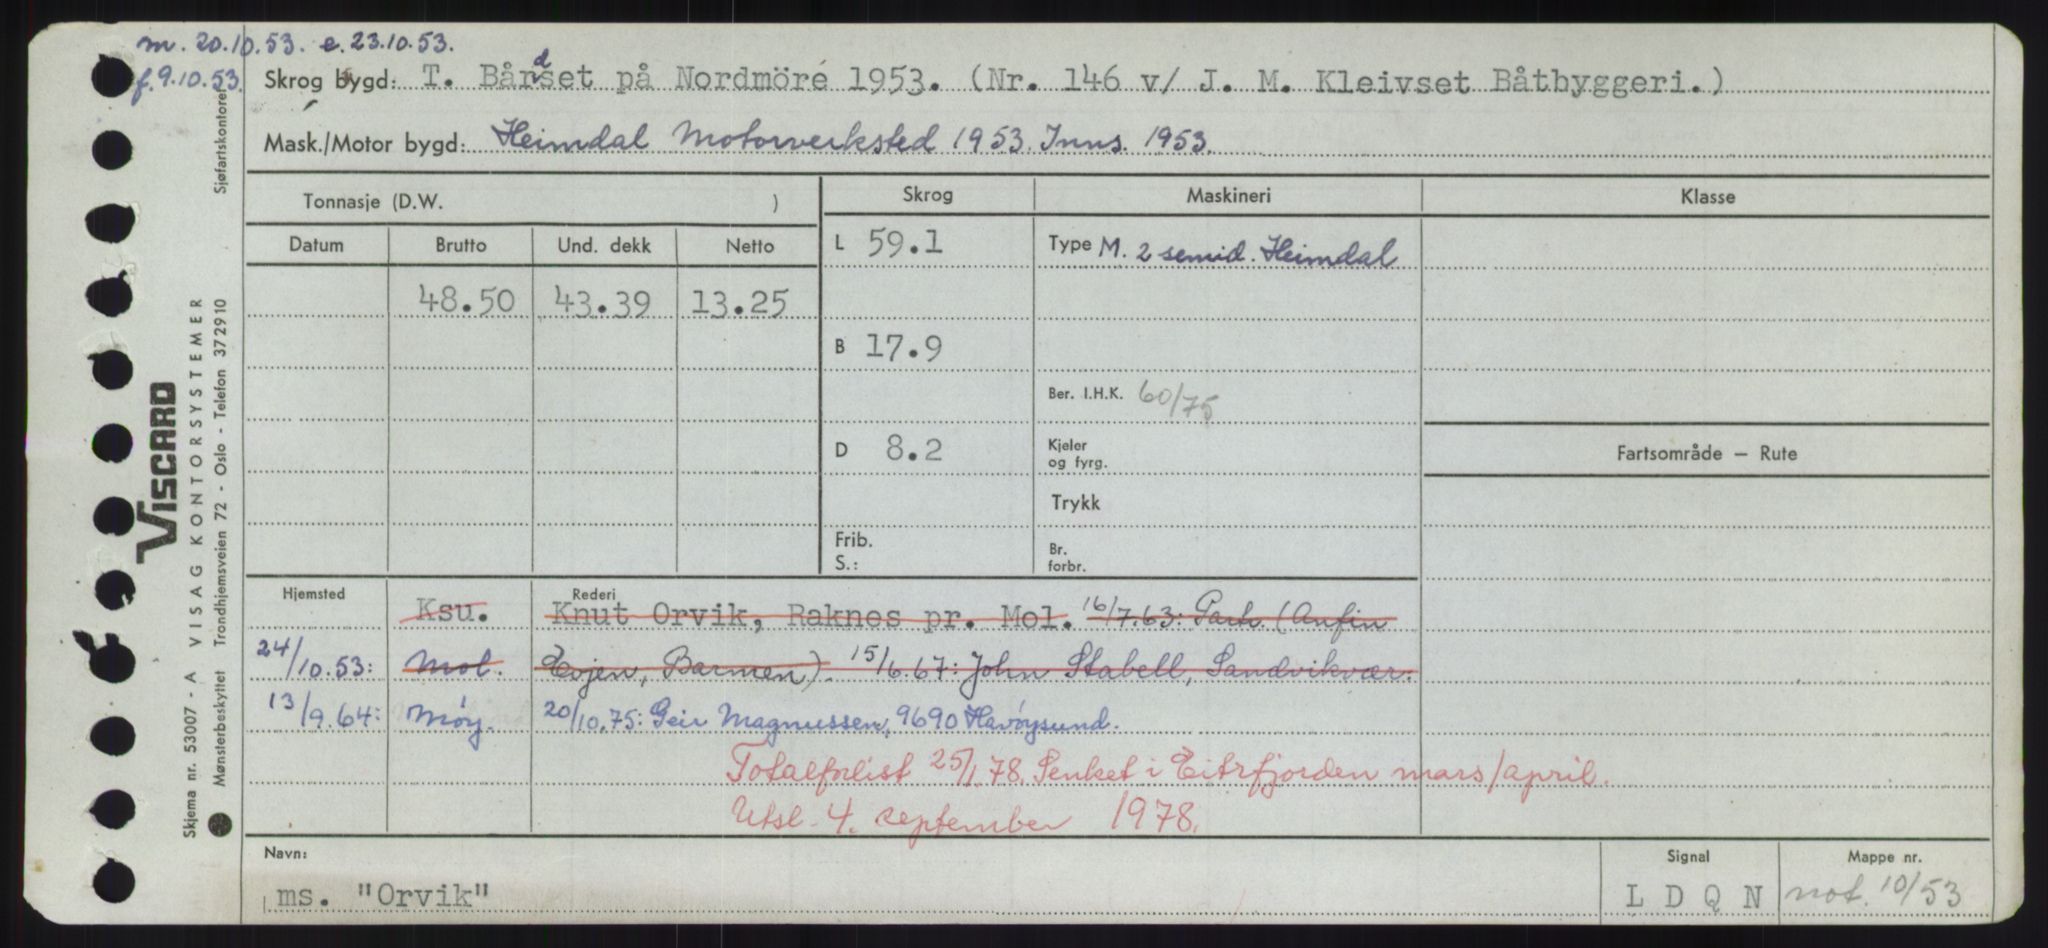 m. 20.10.53. e. 23.10.53.
f. 9.10.53.
Skrog bygd: T. Bårdset på Nordmöre 1953. (Nr. 146 v/ J. M. Kleivset Båtbyggeri.)
Mask./Motor bygd: Heimdal Motorverksted 1953. Inns. 1953.
Sjøfartskontoret
VISCARD
VISAG KONTORSYSTEMER
Trondhjemsveien 72 - Oslo - Telefon 372910
Skjema nr. 53007 - A
Mønsterbeskyttet
Tonnasje (D.W. )
Skrog
Maskineri
Klasse
Datum Brutto Und. dekk Netto
48.50 43.39 13.25
L 59.1
B 17.9
D 8.2
Frib.
S.:
Type M. 2 semid. Heimdal
Ber. I.H.K. 60/75
Kjeler
og fyrg.
Trykk
Br.
forbr.
Fartsområde — Rute
Hjemsted
Rederi
Ksu. Knut Orvik, Raknes pr. Mol. 16/7.63: Part. (Anfin
24/10.53: Mol. Evjen, Barmen). 15/6.67: John Stabell, Sandvikvær.
13/9.64: Møy. 20/10.75: Geir Magnussen, 9690 Havøysund.
Totalforlist 25/1.78. Senket i Eitrfjorden mars/april.
Utsl. 4. september 1978.
Navn:
ms. "Orvik"
Signal
L D Q N
Mappe nr.
not. 10/53